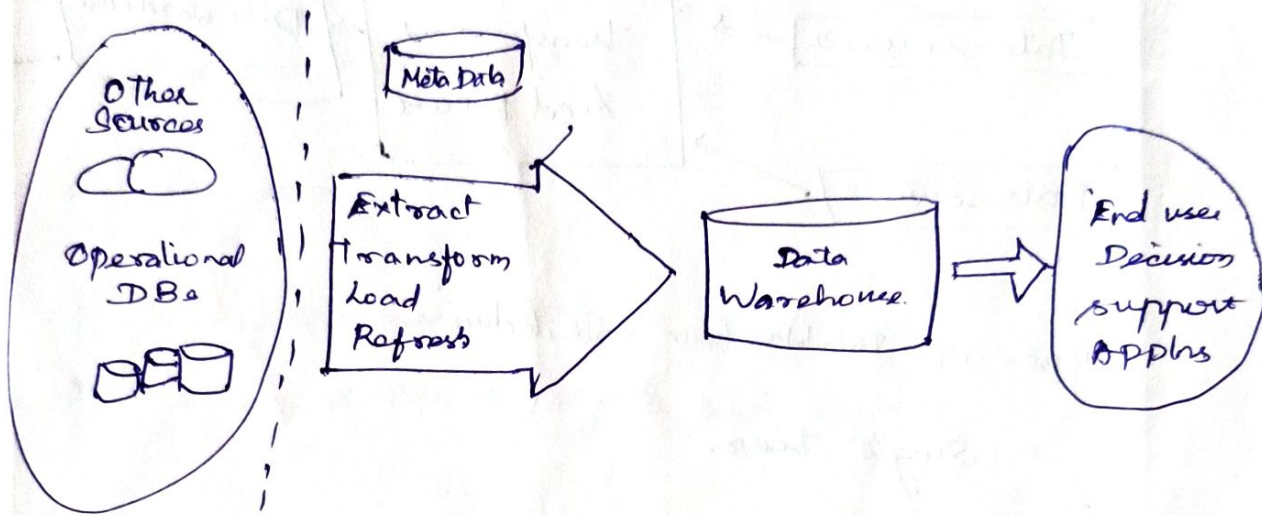 Other
Sources
Operational
DBs
Meta Data
Extract
Transform
Load
Refresh
Data
Warehouse.
End user
Decision
support
Applns